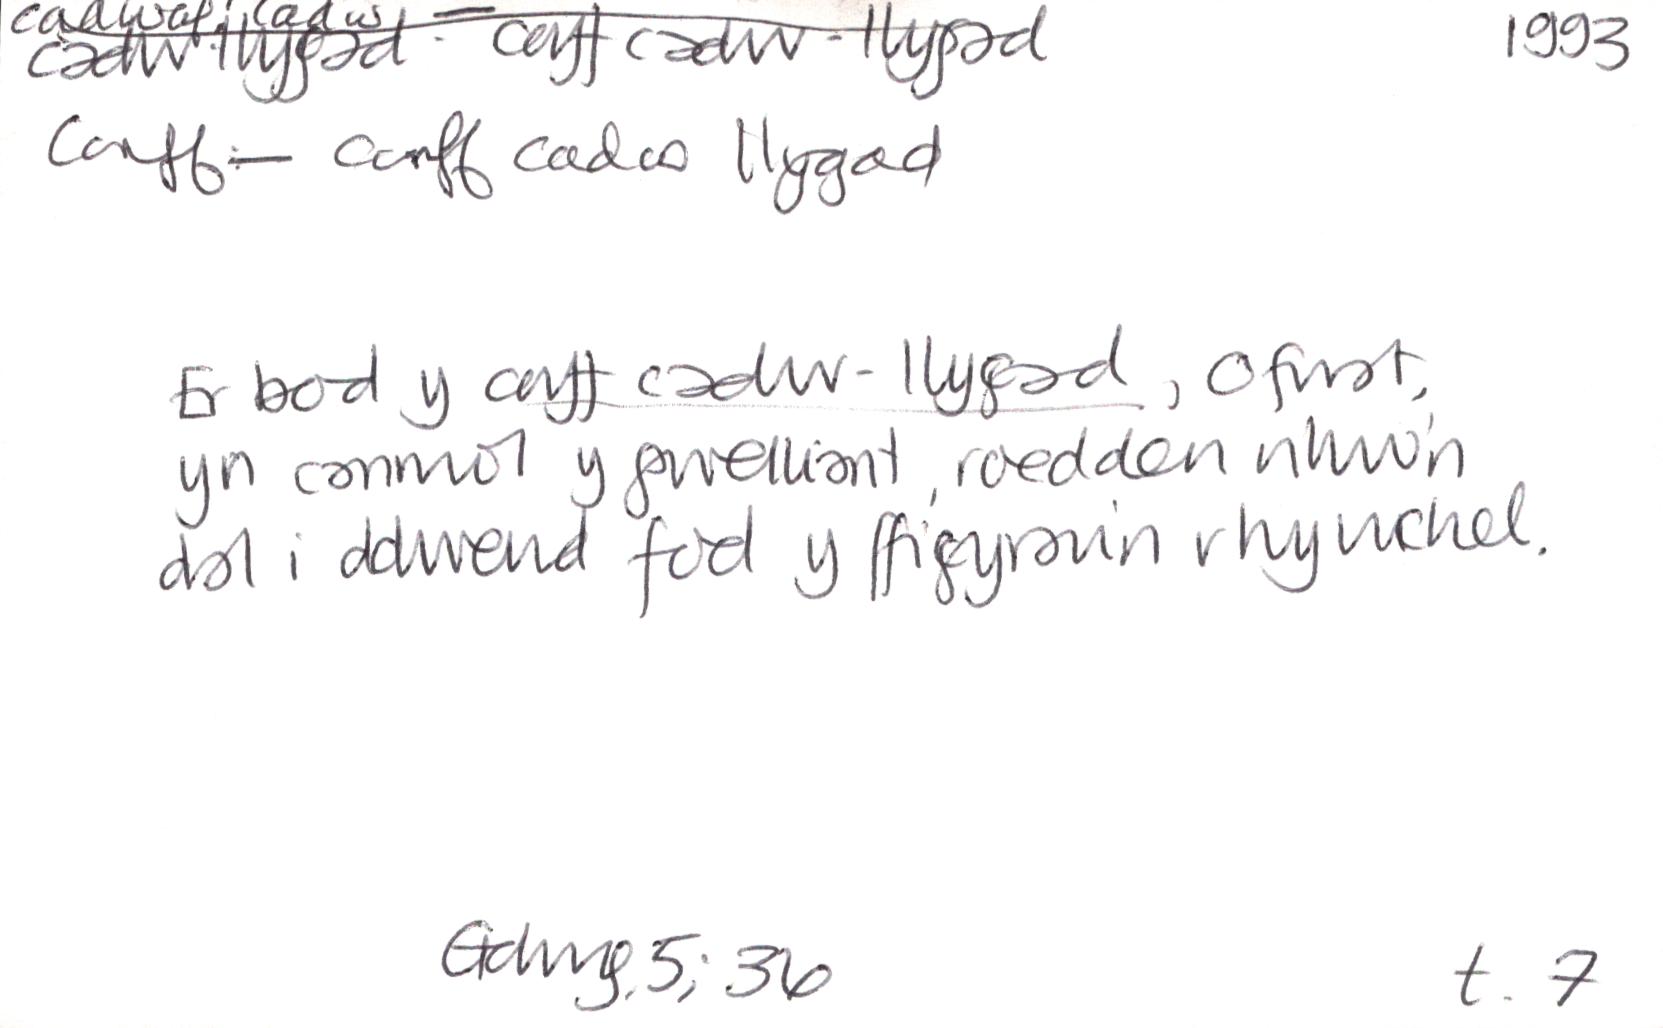 cadwaf: cadw –
cadw-llygad - corff cadw-llygad 1993
Corff:— corff cadw llygad
Er bod y corff cadw-llygad, Ofwat,
yn canmol y gwelliant, roedden nhw'n
dal i ddweud fod y ffigyrau'n rhy uchel.
Golwg, 5; 36 t. 7